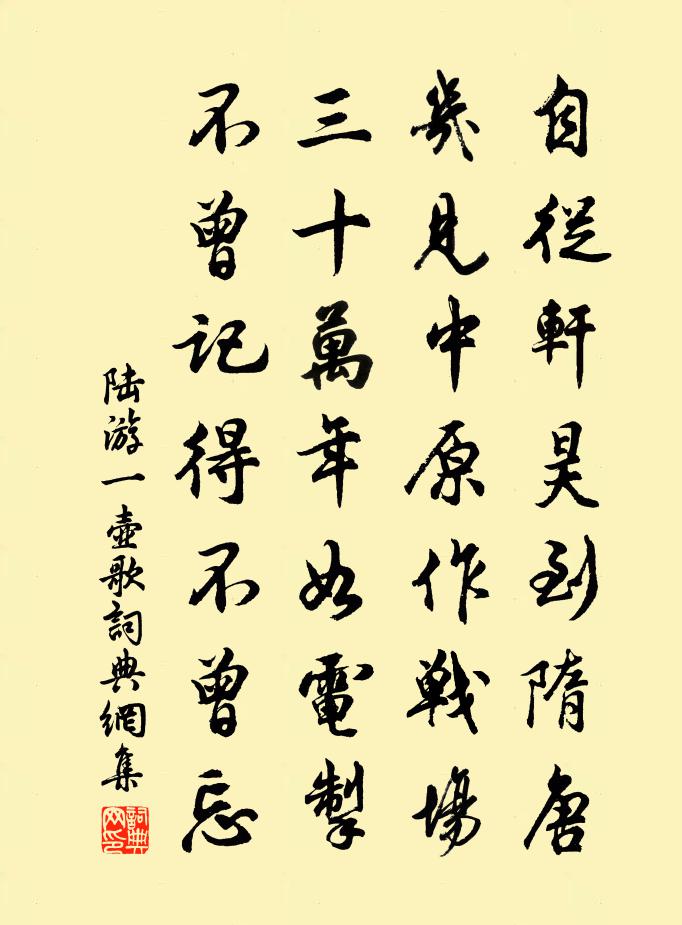 自從軒昊到隋唐
幾見中原作戰場
三十萬年如電掣
不曾記得不曾忘
陆游一壺歌詞典網集
詞典網印